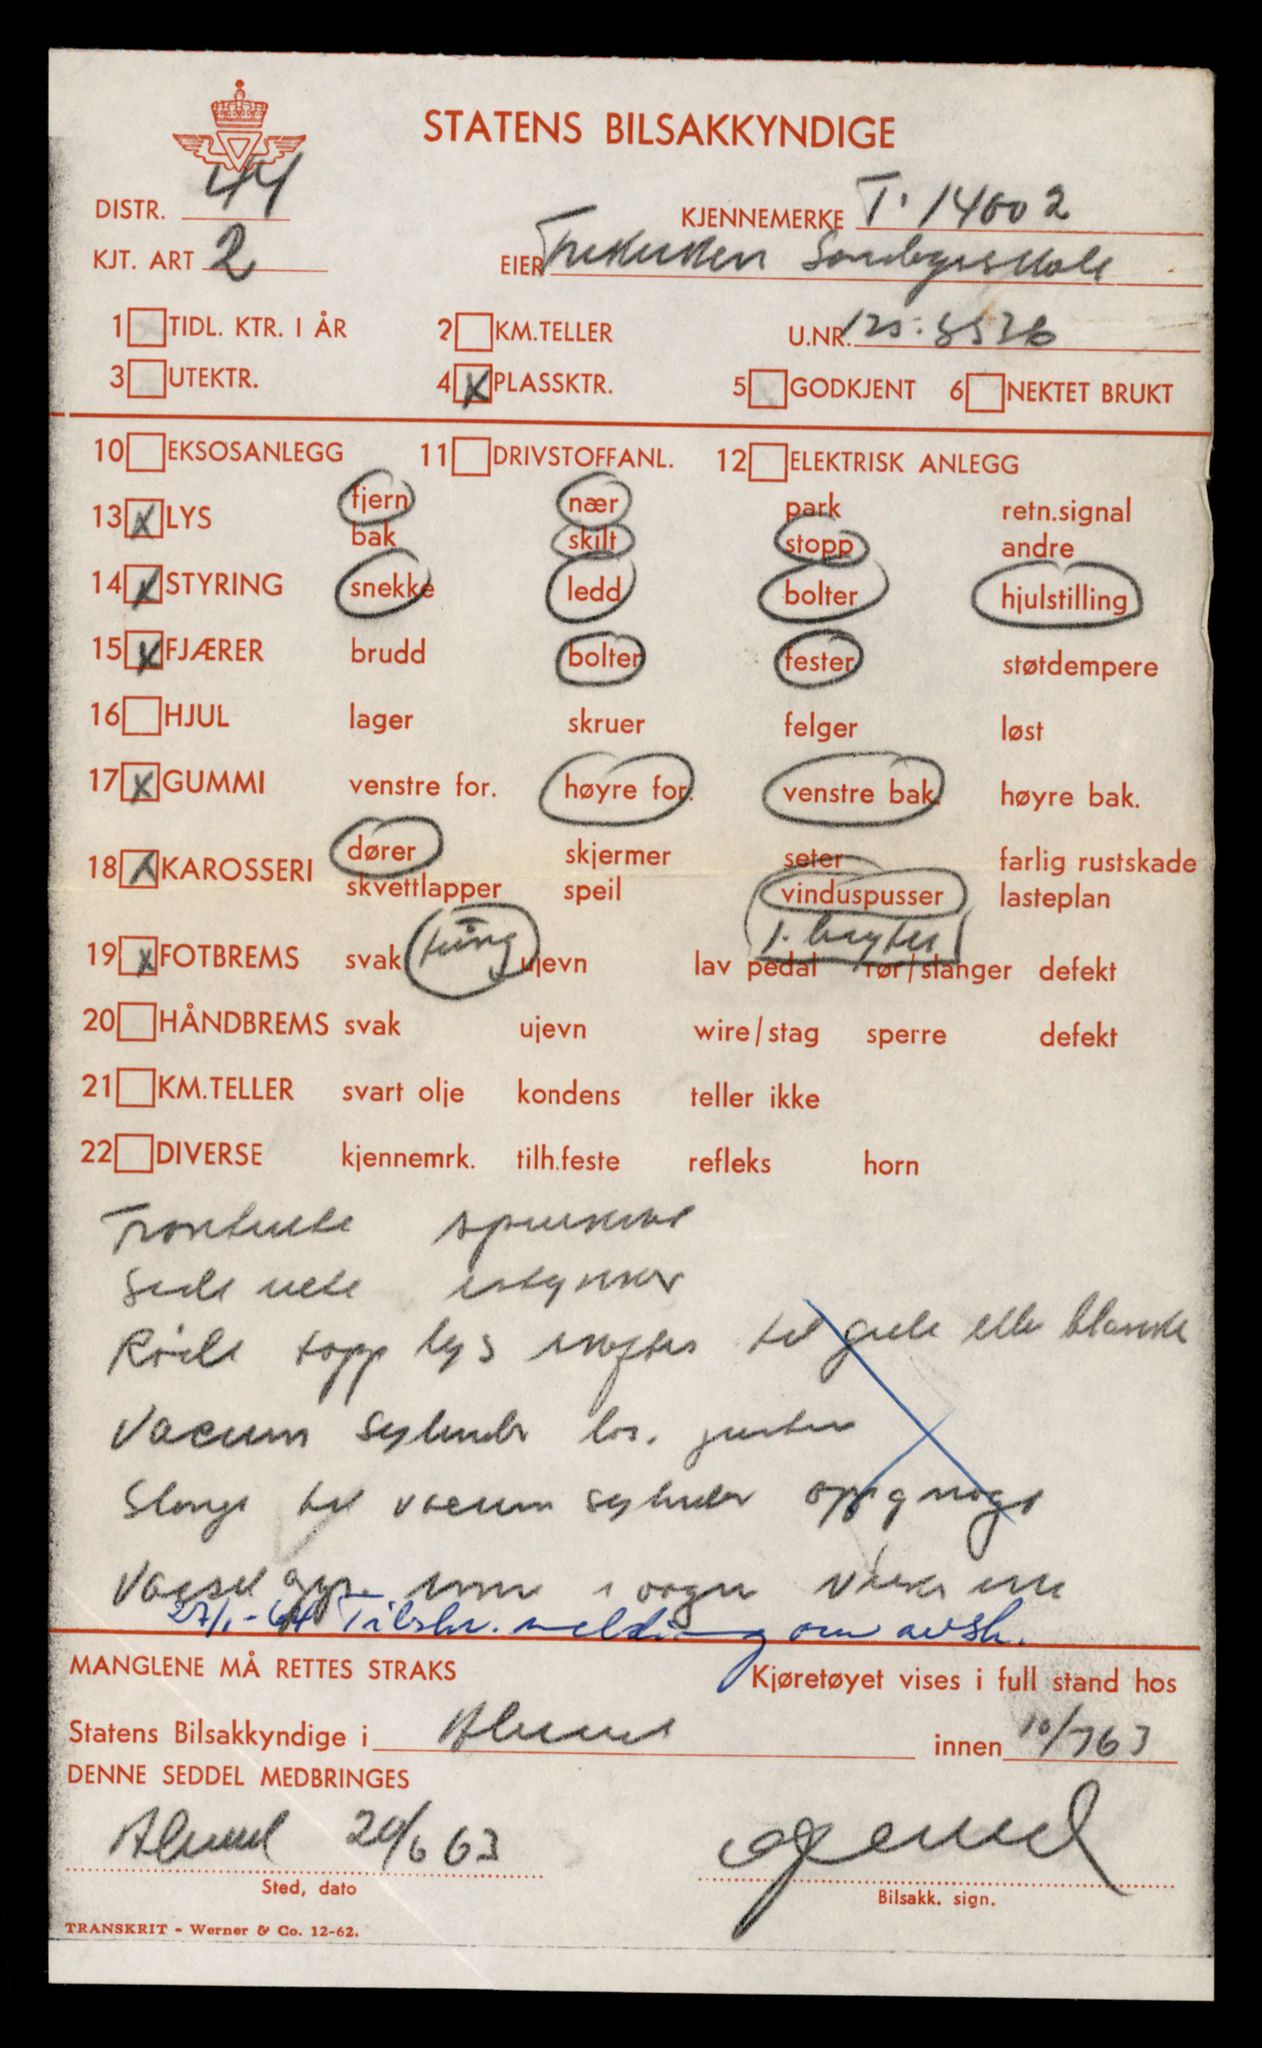 STATENS BILSAKKYNDIGE
DISTR. 44
KJENNEMERKE T. 14602
KJT. ART 2
EIER
1 TIDL. KTR. I ÅR 2 KM.TELLER U.NR. 125.8526
3 UTEKTR. 4 X PLASSKTR. 5 GODKJENT 6 NEKTET BRUKT
10 EKSOSANLEGG 11 DRIVSTOFFANL. 12 ELEKTRISK ANLEGG
13 X LYS fjern nær park retn.signal
bak skilt stopp andre
14 X STYRING snekke ledd bolter hjulstilling
15 X FJÆRER brudd bolter fester støtdempere
16 HJUL lager skruer felger løst
17 X GUMMI venstre for. høyre for. venstre bak. høyre bak.
18 X KAROSSERI dører skjermer seter farlig rustskade
skvettlapper speil vinduspusser lasteplan
19 X FOTBREMS svak tung ujevn lav pedal rør/slanger defekt
20 HÅNDBREMS svak ujevn wire/stag sperre defekt
21 KM.TELLER svart olje kondens teller ikke
22 DIVERSE kjennemrk. tilh.feste refleks horn
Frontrute
Side rute
Røde topp lys skiftes til gule eller blanke
Vacum sylinder løs.
Slange til vacum sylinder oppgnagd
27/1-64 Tilskr. melding om avsk.
MANGLENE MÅ RETTES STRAKS Kjøretøyet vises i full stand hos
Statens Bilsakkyndige i Ålesund innen 10/7 63
DENNE SEDDEL MEDBRINGES
Ålesund 20/6 63
Sted, dato
Bilsakk. sign.
TRANSKRIT - Werner & Co. 12-62.